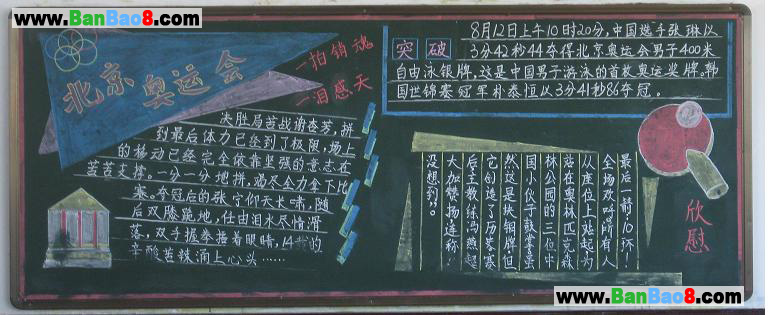 www.BanBao8.com
北京奥运会
一拍销魂
一泪感天
决胜局苦战谢杏芳,拼
到最后体力已经到了极限,场上
的移动已经完全依靠坚强的意志在
苦苦支撑。一分一分地拼,竭尽全力拿下比
赛。夺冠后的张宁仰天长啸,随
后双膝跪地,任由泪水尽情滑
落,双手握拳捂着眼睛,14载的
辛酸苦辣涌上心头……
突破
8月12日上午10时20分,中国选手张琳以
3分42秒44夺得北京奥运会男子400米
自由泳银牌,这是中国男子游泳的首枚奥运奖牌。韩
国世锦赛冠军朴泰恒以3分41秒86夺冠。
最后一箭,10环!
全场欢呼,所有人
从座位上站起为
站在奥林匹克森
林公园的三位中
国小伙子鼓掌。虽
然这是块铜牌,但
它创造了历史。赛
后主教练冯燕起
大加赞扬,连称:
没想到!
欣慰
www.BanBao8.com